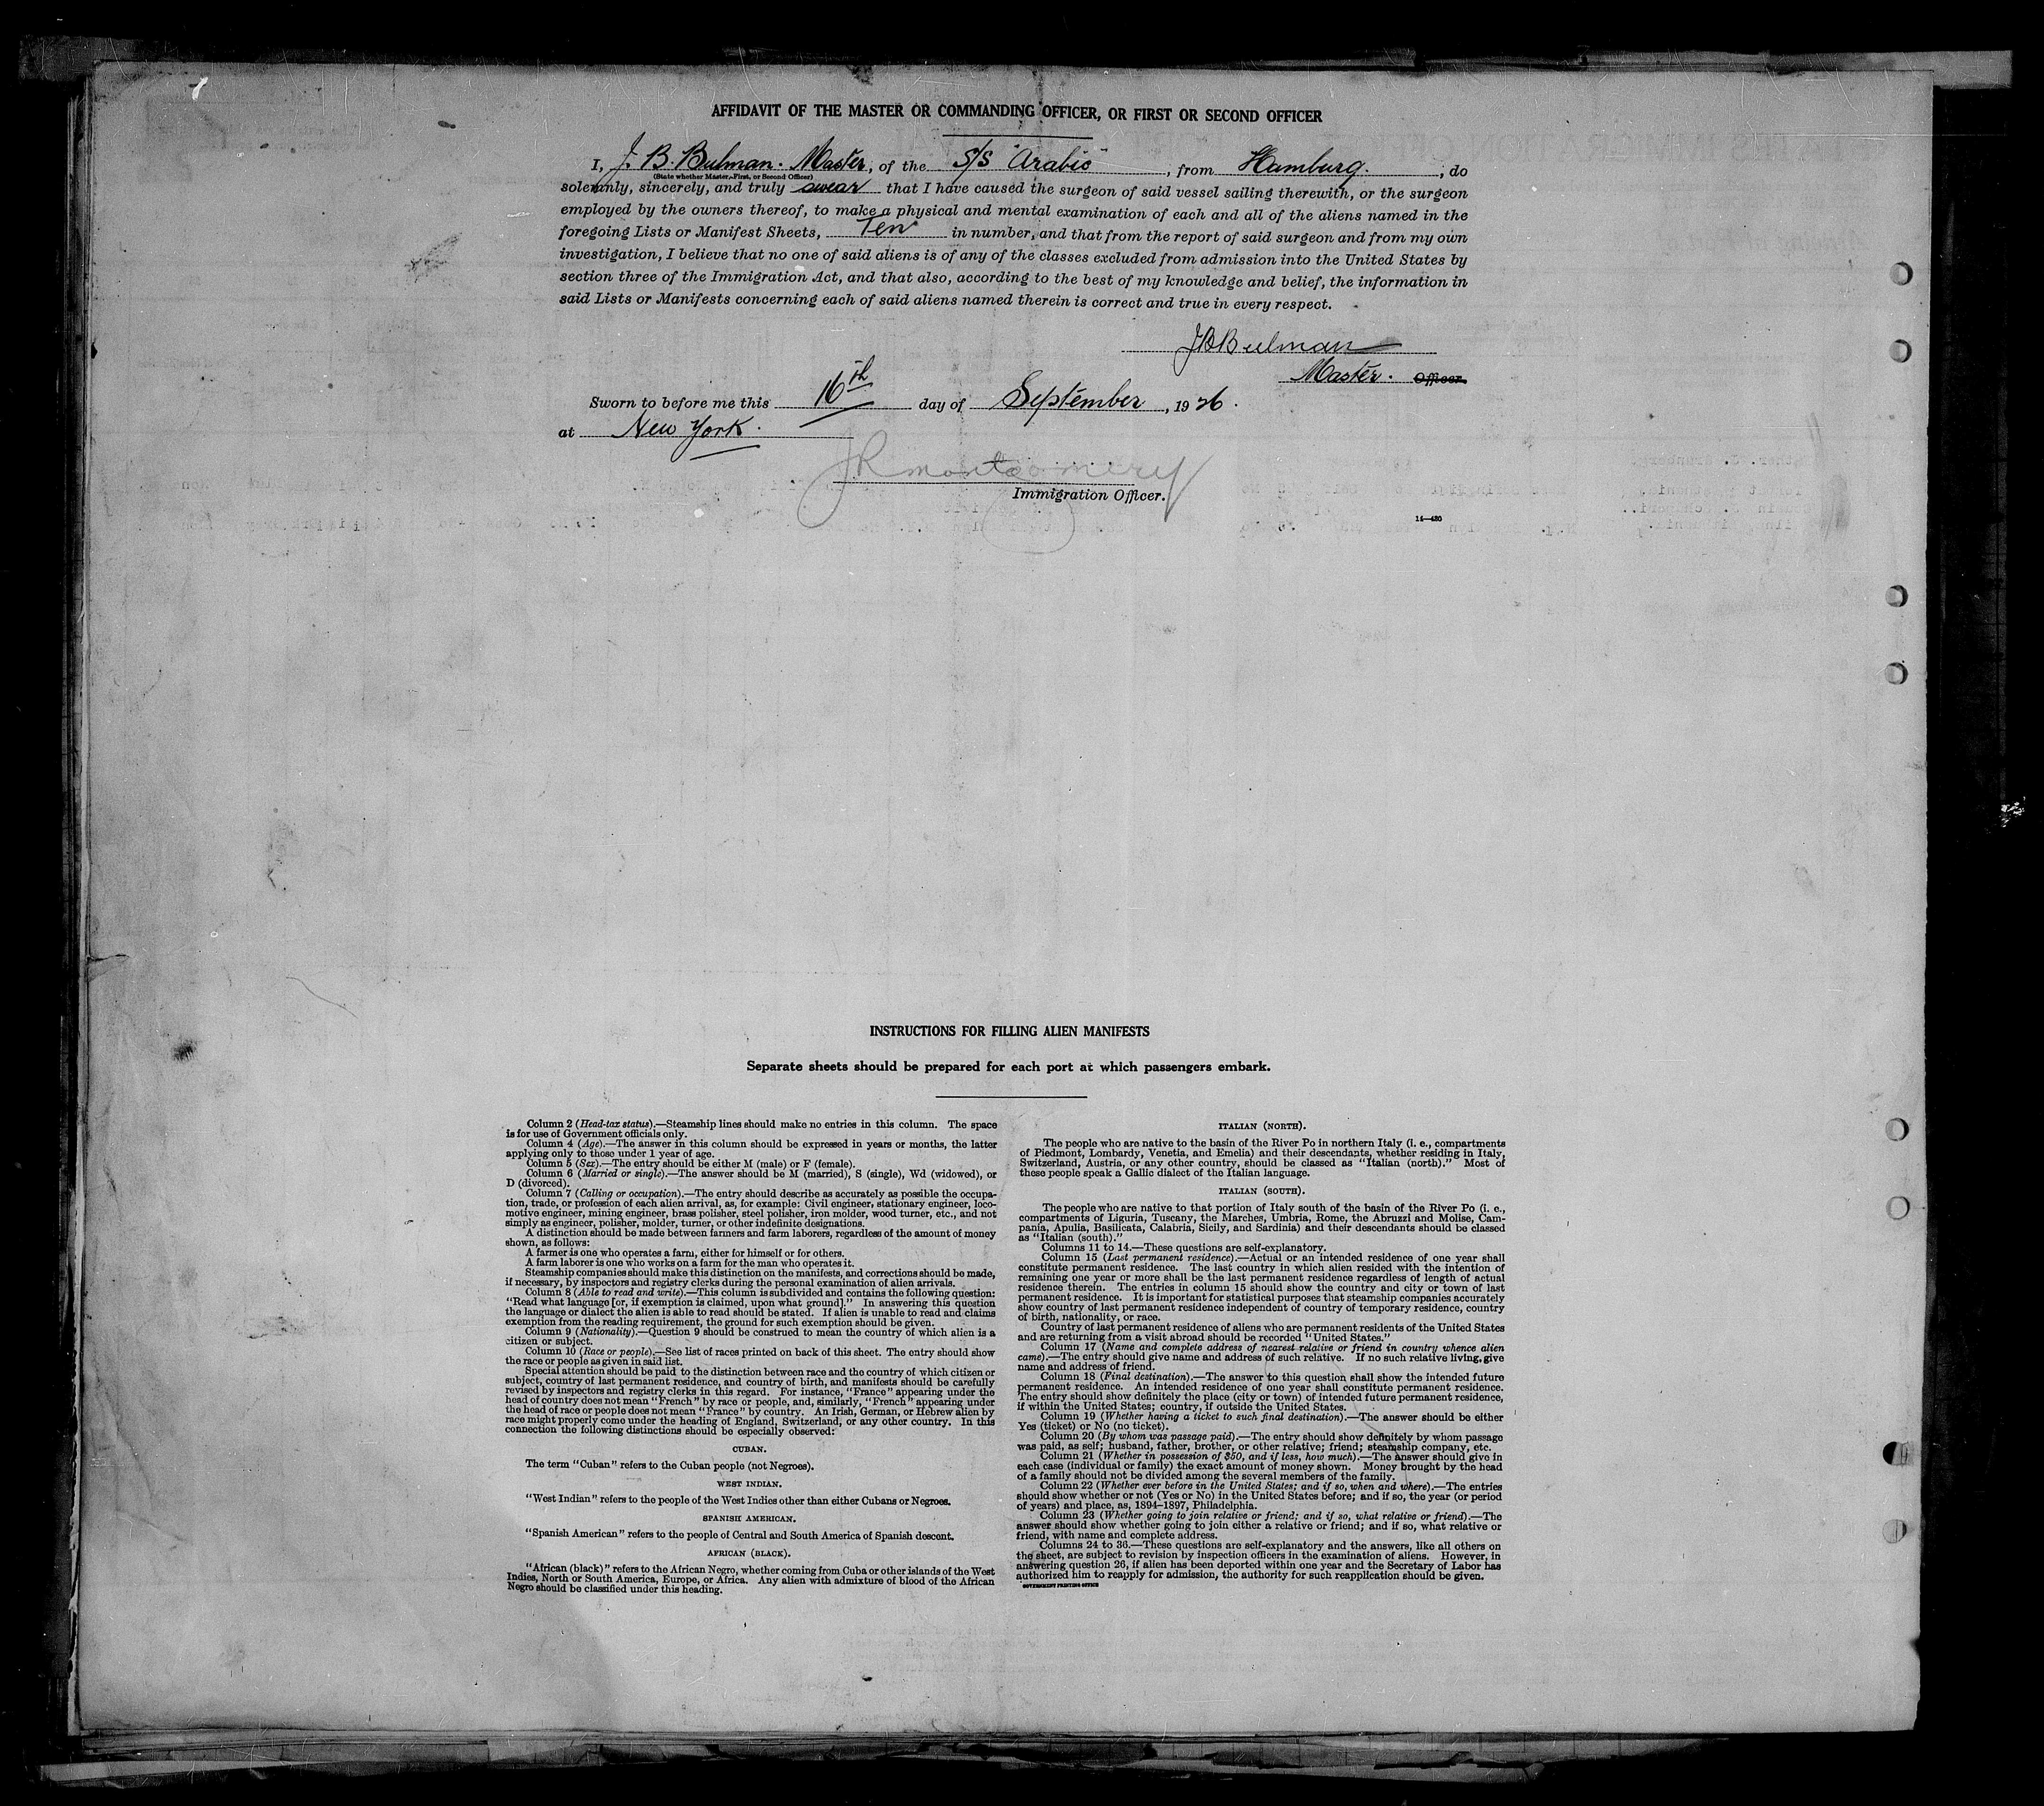 AFFIDAVIT OF THE MASTER OR COMMANDING OFFICER, OR FIRST OR SECOND OFFICER
I, J. B. Bulman. Master, of the S/S "Arabic", from Hamburg. ; do
(State whether Master, First, or Second Officer)
solemnly, sincerely, and truly swear that I have caused the surgeon of said vessel sailing therewith, or the surgeon
employed by the owners thereof, to make a physical and mental examination of each and all of the aliens named in the
foregoing Lists or Manifest Sheets, Ten in number, and that from the report of said surgeon and from my own
investigation, I believe that no one of said aliens is of any of the classes excluded from admission into the United States by
section three of the Immigration Act, and that also, according to the best of my knowledge and belief, the information in
said Lists or Manifests concerning each of said aliens named therein is correct and true in every respect.
JBBulman
Master. Officer.
Sworn to before me this 16th day of September, 1926.
at New York.
JRMontgomery
Immigration Officer.
14—430
INSTRUCTIONS FOR FILLING ALIEN MANIFESTS
Separate sheets should be prepared for each port at which passengers embark.
Column 2 (Head-tax status).—Steamship lines should make no entries in this column. The space
is for use of Government officials only.
Column 4 (Age).—The answer in this column should be expressed in years or months, the latter
applying only to those under 1 year of age.
Column 5 (Sex).—The entry should be either M (male) or F (female).
Column 6 (Married or single).—The answer should be M (married), S (single), Wd (widowed), or
D (divorced).
Column 7 (Calling or occupation).—The entry should describe as accurately as possible the occupa-
tion, trade, or profession of each alien arrival, as, for example: Civil engineer, stationary engineer, loco-
motive engineer, mining engineer, brass polisher, steel polisher, iron molder, wood turner, etc., and not
simply as engineer, polisher, molder, turner, or other indefinite designations.
A distinction should be made between farmers and farm laborers, regardless of the amount of money
shown, as follows:
A farmer is one who operates a farm, either for himself or for others.
A farm laborer is one who works on a farm for the man who operates it.
Steamship companies should make this distinction on the manifests, and corrections should be made,
if necessary, by inspectors and registry clerks during the personal examination of alien arrivals.
Column 8 (Able to read and write).—This column is subdivided and contains the following question:
"Read what language [or, if exemption is claimed, upon what ground]." In answering this question
the language or dialect the alien is able to read should be stated. If alien is unable to read and claims
exemption from the reading requirement, the ground for such exemption should be given.
Column 9 (Nationality).—Question 9 should be construed to mean the country of which alien is a
citizen or subject.
Column 10 (Race or people).—See list of races printed on back of this sheet. The entry should show
the race or people as given in said list.
Special attention should be paid to the distinction between race and the country of which citizen or
subject, country of last permanent residence, and country of birth, and manifests should be carefully
revised by inspectors and registry clerks in this regard. For instance, "France" appearing under the
head of country does not mean "French" by race or people, and, similarly, "French" appearing under
the head of race or people does not mean "France" by country. An Irish, German, or Hebrew alien by
race might properly come under the heading of England, Switzerland, or any other country. In this
connection the following distinctions should be especially observed:
CUBAN.
The term "Cuban" refers to the Cuban people (not Negroes).
WEST INDIAN.
"West Indian" refers to the people of the West Indies other than either Cubans or Negroes.
SPANISH AMERICAN.
"Spanish American" refers to the people of Central and South America of Spanish descent.
AFRICAN (BLACK).
"African (black)" refers to the African Negro, whether coming from Cuba or other islands of the West
Indies, North or South America, Europe, or Africa. Any alien with admixture of blood of the African
Negro should be classified under this heading.
ITALIAN (NORTH).
The people who are native to the basin of the River Po in northern Italy (i. e., compartments
of Piedmont, Lombardy, Venetia, and Emelia) and their descendants, whether residing in Italy,
Switzerland, Austria, or any other country, should be classed as "Italian (north)." Most of
these people speak a Gallic dialect of the Italian language.
ITALIAN (SOUTH).
The people who are native to that portion of Italy south of the basin of the River Po (i. e.,
compartments of Liguria, Tuscany, the Marches, Umbria, Rome, the Abruzzi and Molise, Cam-
pania, Apulia, Basilicata, Calabria, Sicily, and Sardinia) and their descendants should be classed
as "Italian (south)."
Columns 11 to 14.—These questions are self-explanatory.
Column 15 (Last permanent residence).—Actual or an intended residence of one year shall
constitute permanent residence. The last country in which alien resided with the intention of
remaining one year or more shall be the last permanent residence regardless of length of actual
residence therein. The entries in column 15 should show the country and city or town of last
permanent residence. It is important for statistical purposes that steamship companies accurately
show country of last permanent residence independent of country of temporary residence, country
of birth, nationality, or race.
Country of last permanent residence of aliens who are permanent residents of the United States
and are returning from a visit abroad should be recorded "United States."
Column 17 (Name and complete address of nearest relative or friend in country whence alien
came).—The entry should give name and address of such relative. If no such relative living, give
name and address of friend.
Column 18 (Final destination).—The answer to this question shall show the intended future
permanent residence. An intended residence of one year shall constitute permanent residence.
The entry should show definitely the place (city or town) of intended future permanent residence,
if within the United States; country, if outside the United States.
Column 19 (Whether having a ticket to such final destination).—The answer should be either
Yes (ticket) or No (no ticket).
Column 20 (By whom was passage paid).—The entry should show definitely by whom passage
was paid, as self; husband, father, brother, or other relative; friend; steamship company, etc.
Column 21 (Whether in possession of $50, and if less, how much).—The answer should give in
each case (individual or family) the exact amount of money shown. Money brought by the head
of a family should not be divided among the several members of the family.
Column 22 (Whether ever before in the United States; and if so, when and where).—The entries
should show whether or not (Yes or No) in the United States before; and if so, the year (or period
of years) and place, as, 1894–1897, Philadelphia.
Column 23 (Whether going to join relative or friend; and if so, what relative or friend).—The
answer should show whether going to join either a relative or friend; and if so, what relative or
friend, with name and complete address.
Columns 24 to 36.—These questions are self-explanatory and the answers, like all others on
the sheet, are subject to revision by inspection officers in the examination of aliens. However, in
answering question 26, if alien has been deported within one year and the Secretary of Labor has
authorized him to reapply for admission, the authority for such reapplication should be given.
GOVERNMENT PRINTING OFFICE